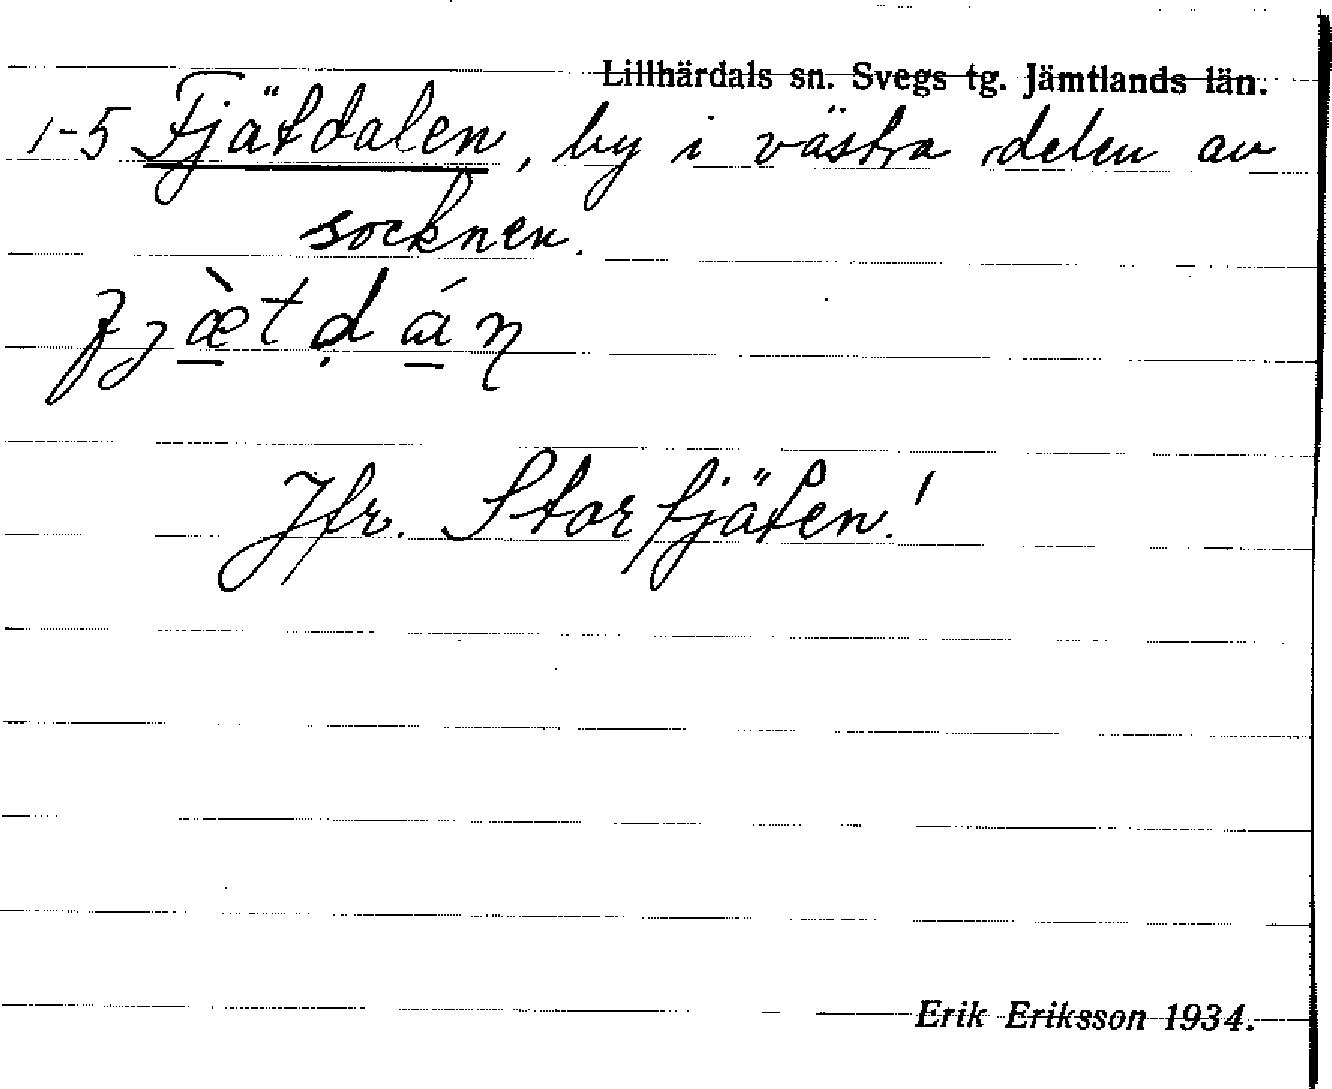 Lillhärdals sn. Svegs tg. Jämtlands län.
1-5 Fjätdalen, by i västra delen av
socknen.
fjæ̠̀tḍá̠ŋ
Jfr. Storfjäten!
Erik Eriksson 1934.